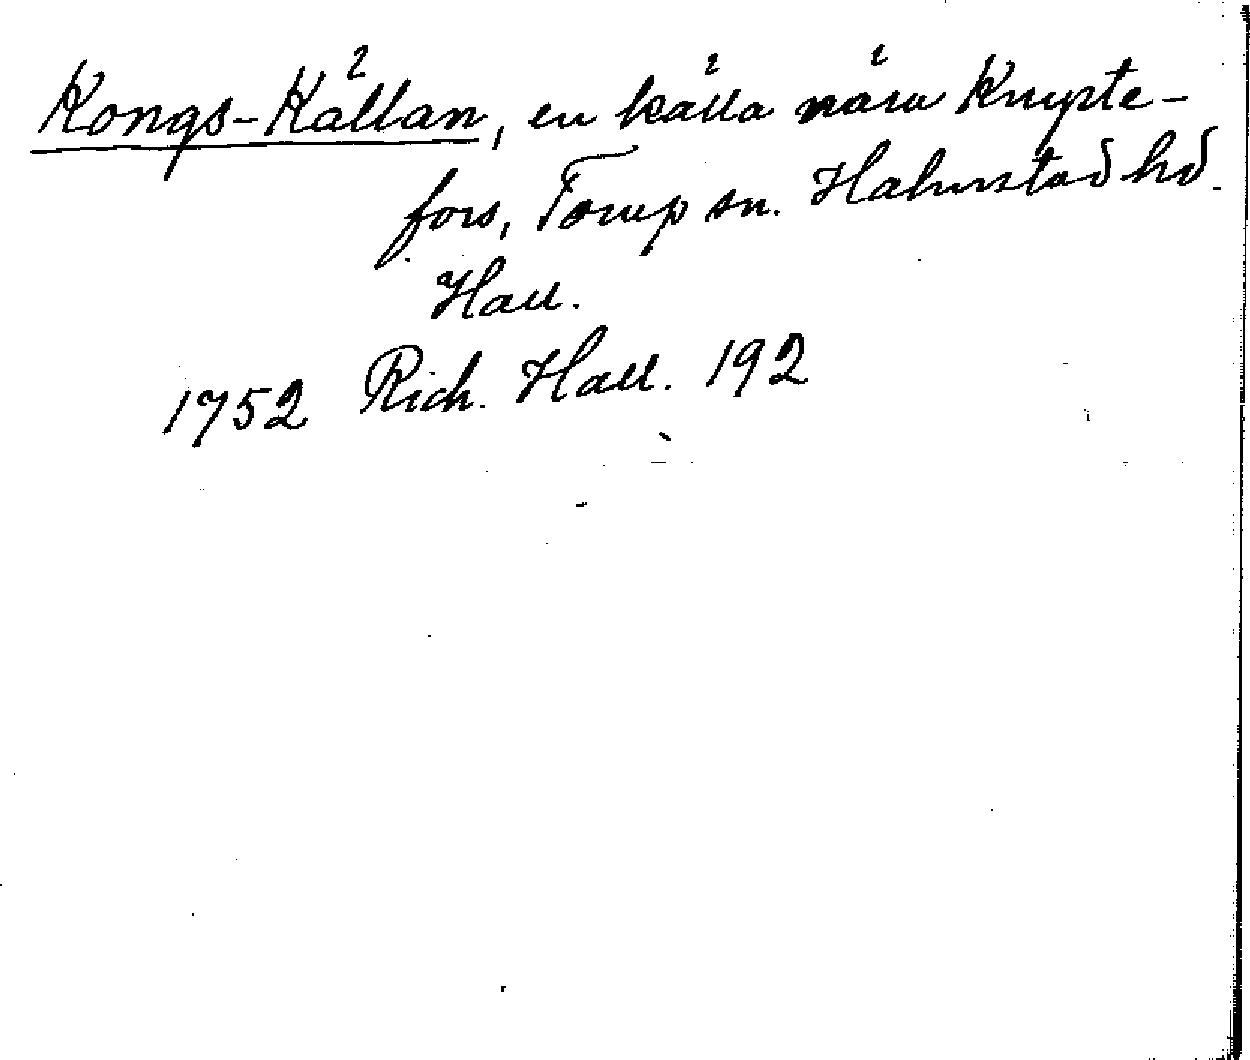 Kongs-Källan, en källa nära Knypte-
fors, Torup sn. Halmstad hd.
Hall.
1752 Rich. Hall. 192